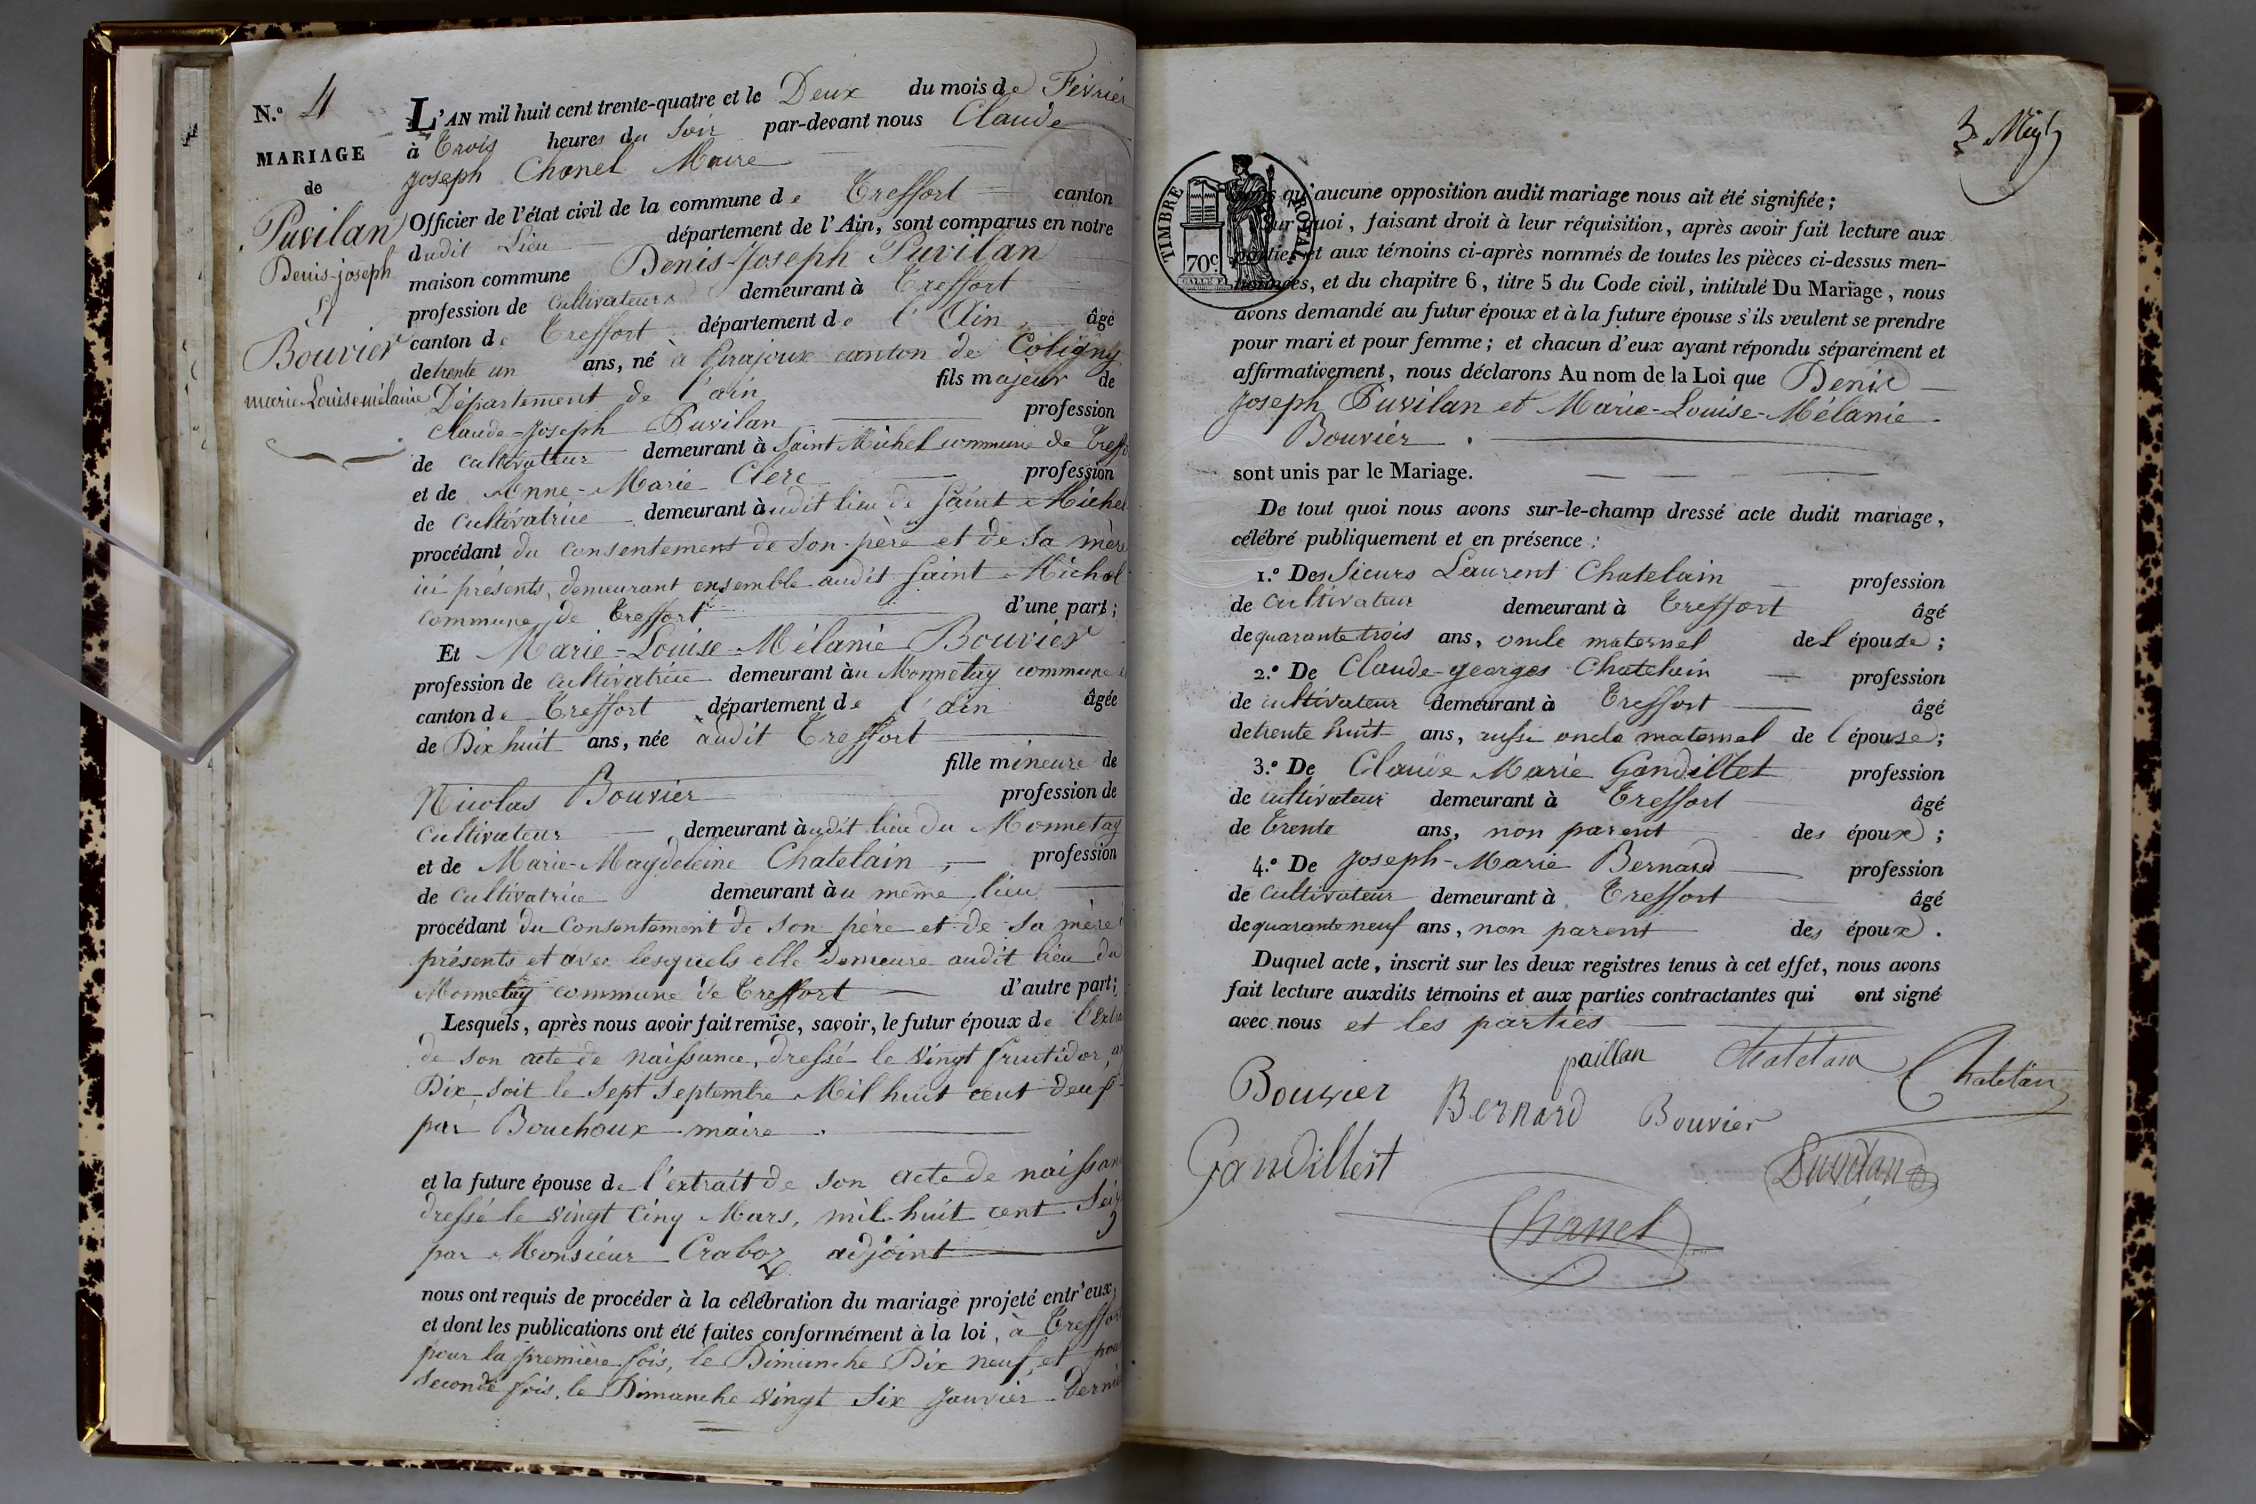 N.º 4
MARIAGE
de
Puvilan
Denis-joseph
et
Bouvier
marie Louise mélanie
L'AN mil huit cent trente-quatre et le Deux du mois de Février
à Trois heures du Soir par-devant nous Claude
Joseph Chanel Maire
Officier de l'état civil de la commune de Treffort canton
dudit Lieu département de l'Ain, sont comparus en notre
maison commune Denis-Joseph Puvilan
profession de cultivateur demeurant à Treffort
canton de Treffort département de l'Ain âgé
de trente un ans, né à Pirajoux canton de Coligny
Département de l'ain fils majeur de
Claude-Joseph Puvilan profession
de cultivateur demeurant à Saint Michel commune de Treff
et de Anne-Marie Clerc profession
de cultivatrice demeurant audit lieu de Saint Michel
procédant du consentement de son père et de sa mère
ici présents, demeurant ensemble audit Saint Michel
commune de Treffort d'une part;
Et Marie-Louise-Mélanie Bouvier
profession de cultivatrice demeurant au Monnetay commune
canton de Treffort département de l'ain âgée
de Dix huit ans, née audit Treffort
fille mineure de
Nicolas Bouvier profession de
cultivateur demeurant audit lieu du Monnetay
et de Marie-Magdeleine Chatelain, profession
de cultivatrice demeurant au même lieu
procédant du consentement de son père et de sa mère
présents et avec lesquels elle demeure audit lieu du
Monnetay commune de Treffort d'autre part;
Lesquels, après nous avoir fait remise, savoir, le futur époux de l'Extra
de son acte de naissance, dressé le vingt fructidor, an
Dix, soit le sept septembre Mil huit cent deux
par Bouchoux maire.
et la future épouse de l'extrait de son acte de naissan
dressé le vingt cinq Mars, mil huit cent Seize
par Monsieur Craboz adjoint
nous ont requis de procéder à la célébration du mariage projeté entr'eux,
et dont les publications ont été faites conformément à la loi, à Treffort
pour la première fois, le Dimanche Dix neuf, et pour
seconde fois, le Dimanche vingt Six Janvier dernier
TIMBRE ROYAL
70c.
qu'aucune opposition audit mariage nous ait été signifiée;
Sur quoi, faisant droit à leur réquisition, après avoir fait lecture aux
parties et aux témoins ci-après nommés de toutes les pièces ci-dessus men-
tionnées, et du chapitre 6, titre 5 du Code civil, intitulé Du Mariage, nous
avons demandé au futur époux et à la future épouse s'ils veulent se prendre
pour mari et pour femme; et chacun d'eux ayant répondu séparément et
affirmativement, nous déclarons Au nom de la Loi que Denis
Joseph Puvilan et Marie-Louise-Mélanie
Bouvier.
sont unis par le Mariage.
De tout quoi nous avons sur-le-champ dressé acte dudit mariage,
célébré publiquement et en présence:
1.º Des Sieurs Laurent Chatelain profession
de cultivateur demeurant à Treffort âgé
de quarante trois ans, oncle maternel de l'épouse;
2.º De Claude-georges Chatelain profession
de cultivateur demeurant à Treffort âgé
de trente huit ans, aussi oncle maternel de l'épouse;
3.º De Claude Marie Gandillet profession
de cultivateur demeurant à Treffort âgé
de Trente ans, non parent des époux;
4.º De Joseph-Marie Bernard profession
de cultivateur demeurant à Treffort âgé
de quarante neuf ans, non parent des époux.
Duquel acte, inscrit sur les deux registres tenus à cet effet, nous avons
fait lecture auxdits témoins et aux parties contractantes qui ont signé
avec nous et les parties
Bouvier paillan Chatelain Chatelain
Bernard Bouvier
Gandillet Puvilan
Chanel